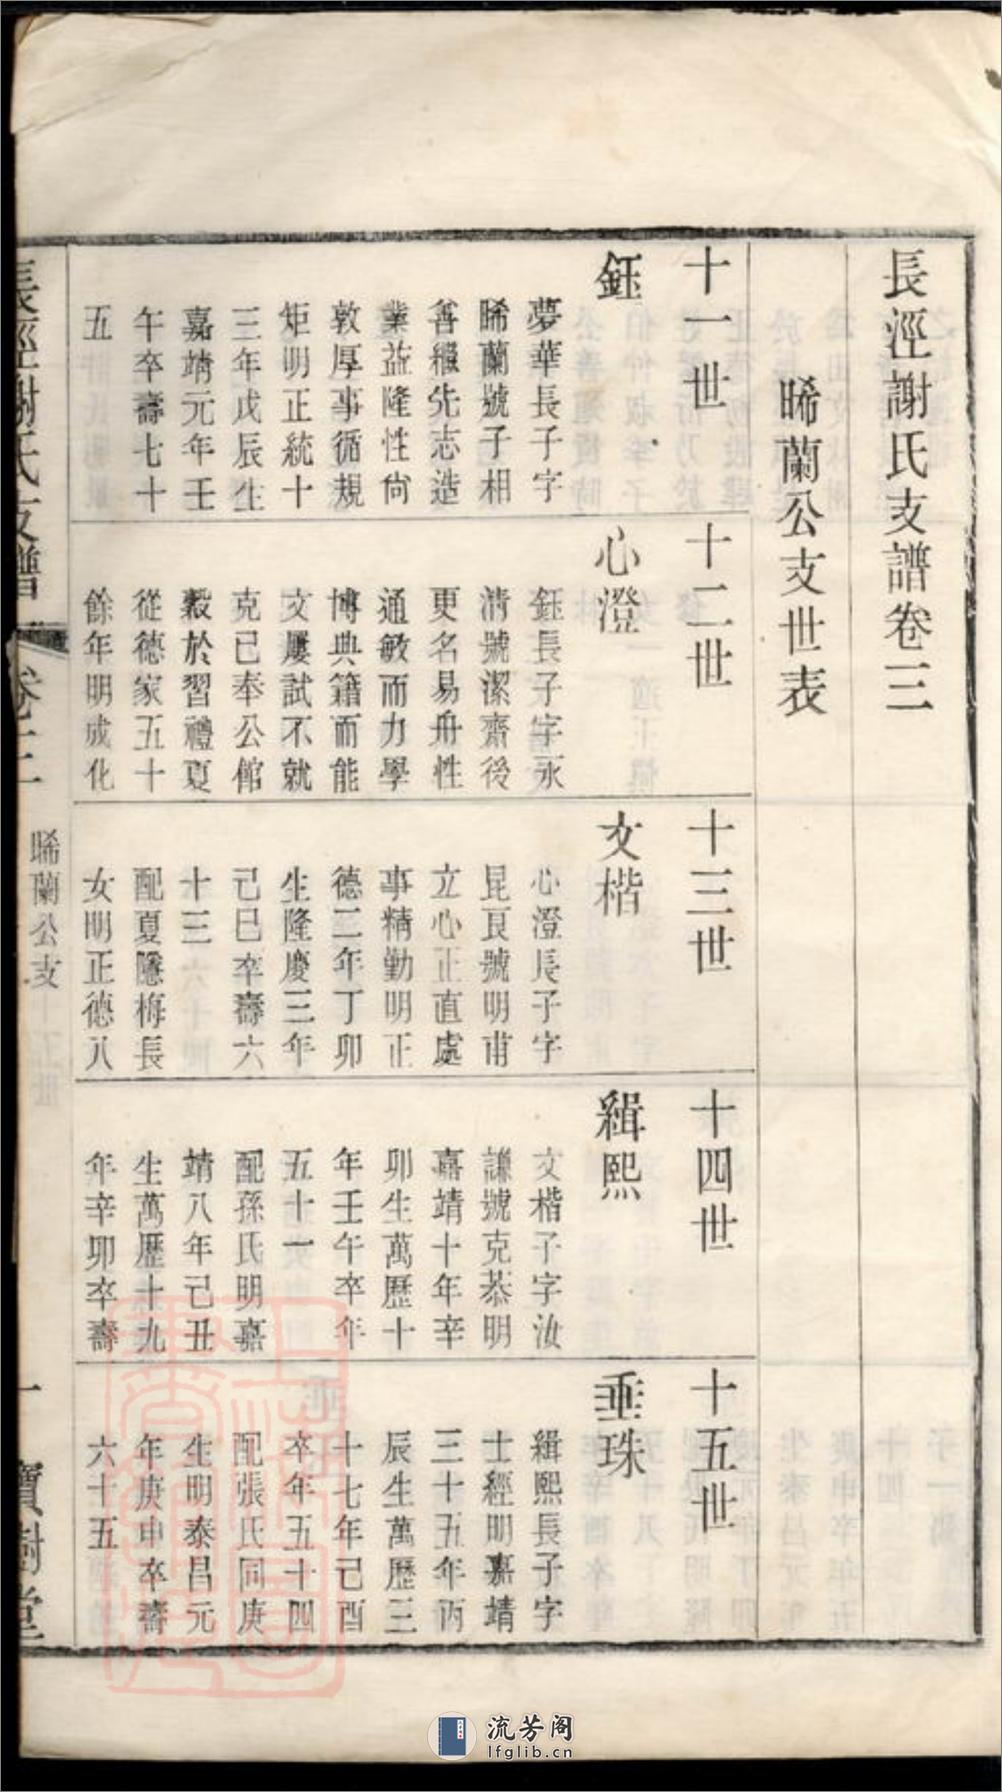 長涇謝氏支譜卷三
晞蘭公支世表
十一世
鈺
夢華長子字
晞蘭號子相
善繼先志造
業益隆性尚
敦厚事循規
矩明正統十
三年戊辰生
嘉靖元年壬
午卒壽七十
五
十二世
心澄
鈺長子字永
清號潔齋後
更名易舟性
通敏而力學
博典籍而能
文屢試不就
克己奉公館
穀於習禮夏
從德家五十
餘年明成化
十三世
文楷
心澄長子字
昆良號明甫
立心正直處
事精勤明正
德二年丁卯
生隆慶三年
己巳卒壽六
十三
配夏隱梅長
女明正德八
十四世
緝熙
文楷子字汝
謙號克恭明
嘉靖十年辛
卯生萬歷十
年壬午卒年
五十一
配孫氏明嘉
靖八年己丑
生萬歷十九
年辛卯卒壽
十五世
垂珠
緝熙長子字
士經明嘉靖
三十五年丙
辰生萬歷三
十七年己酉
卒年五十四
配張氏同庚
生明泰昌元
年庚申卒壽
六十五
長涇謝氏支譜
卷三
晞蘭公支
一
寶樹堂
流芳阁
lfglib.cn